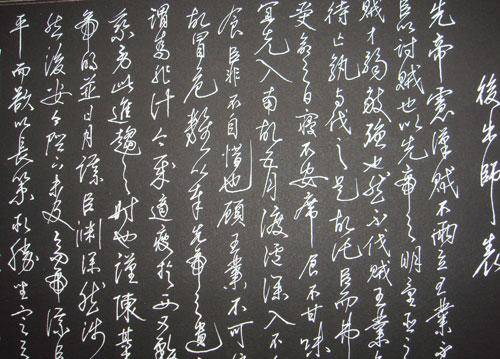 後出師表
先帝慮漢賊不兩立王業不
臣以討賊也以先帝之明量臣之
賊才弱敵強也然不伐賊王業
待亡孰與伐之是故託臣而弗
受命之日寢不安席食不甘味
宜先入南故五月渡瀘深入不
食臣非不自惜也顧王業不可
故冒危難以奉先帝之遺
謂為非計今賊適疲於西又務
乘勞此進趨之時也謹陳其
帝明並日月謀臣淵深然涉
然後安今陛下未及高帝謀臣
平而欲以長策取勝坐定